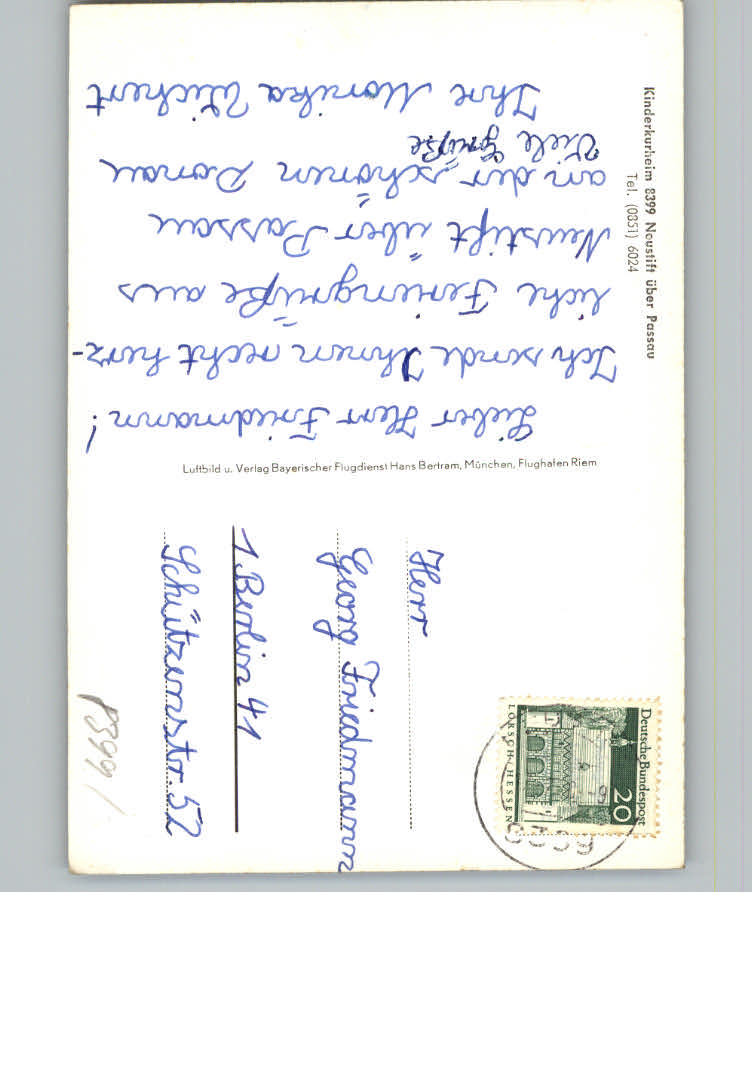 Kinderkurheim 8399 Neustift über Passau
Tel. (0851) 6024
Lieber Herr Friedmann!
Ich sende Ihnen recht herz-
liche Feriengrüße aus
Neustift über Passau
an der schönen Donau
Viele Grüße
Ihre Monika Wichert
Luftbild u. Verlag Bayerischer Flugdienst Hans Bertram, München, Flughafen Riem
Deutsche Bundespost
20
LORSCH · HESSEN
Herr
Georg Friedmann
1 Berlin 41
Schützenstr. 52